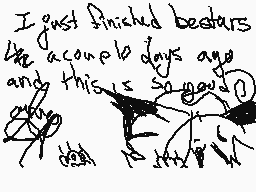 I just finished beastars
a couple days ago
and this is so good